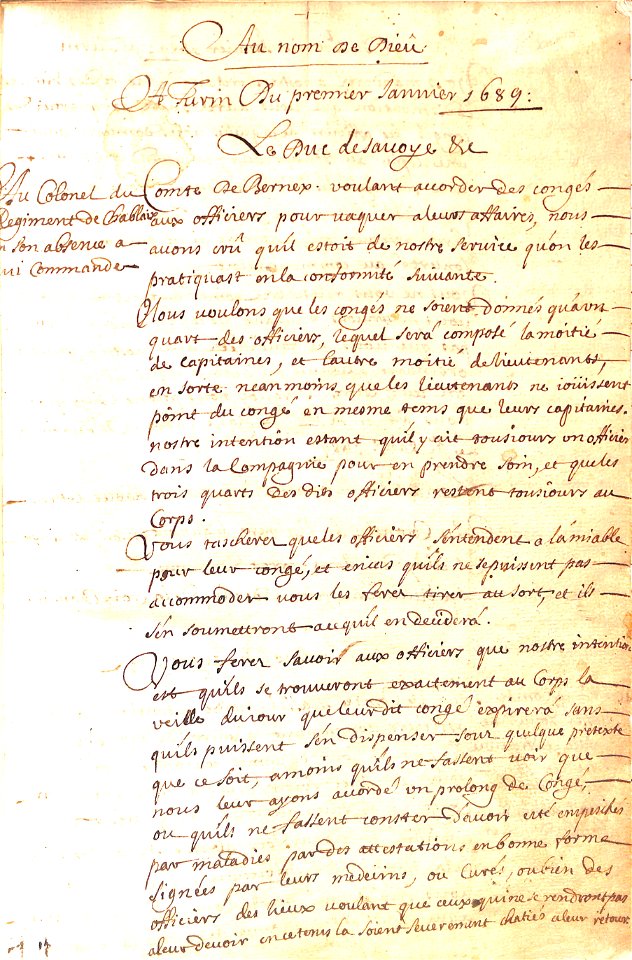 Au nom De Dieu
A Turin Du premier Janvier 1689:
Le Duc de Savoye &c
Au Colonel du
Regiment de Chablais
en son absence a
qui commande
Comte De Bernex. voulant accorder des congés
aux officiers pour vaquer a leurs affaires, nous
avons crû qu'il estoit de nostre service qu'on les
pratiquast en la conformité suivante.
Nous voulons que les congés ne soient donnés qu'a un
quart des officiers, lequel sera composé la moitié
de capitaines, et l'autre moitié de lieutenants,
en sorte neanmoins que les lieutenants ne joüissent
point du congé en mesme tems que leurs capitaines.
nostre intention estant qu'il y ait tousjours un officier
dans la Compagnie pour en prendre soin, et que les
trois quarts des dits officiers restent tousjours au
Corps.
Vous tascherez que les officiers s'entendent a l'amiable
pour leur congé, et en cas qu'ils ne se puissent pas
accommoder vous les ferez tirer au sort, et ils
s'en soumettront a ce qu'il en deciderá.
Vous ferez savoir aux officiers que nostre intention
est qu'ils se trouveront exactement au Corps la
veille du jour que leur dit congé expirerá sans
qu'ils puissent s'en dispenser sour quelque pretexte
que ce soit, a moins qu'ils ne fassent voir que
nous leur ayons accordé un prolong de Congé,
ou qu'ils ne fassent conster d'avoir esté empeschés
par maladies par des attestations en bonne forme
signées par leurs medecins, ou Curés, ou bien des
officiers des lieux voulant que ceux qui ne se rendront pas
a leur devoir en ce tems la soient severement chatiés a leur retour